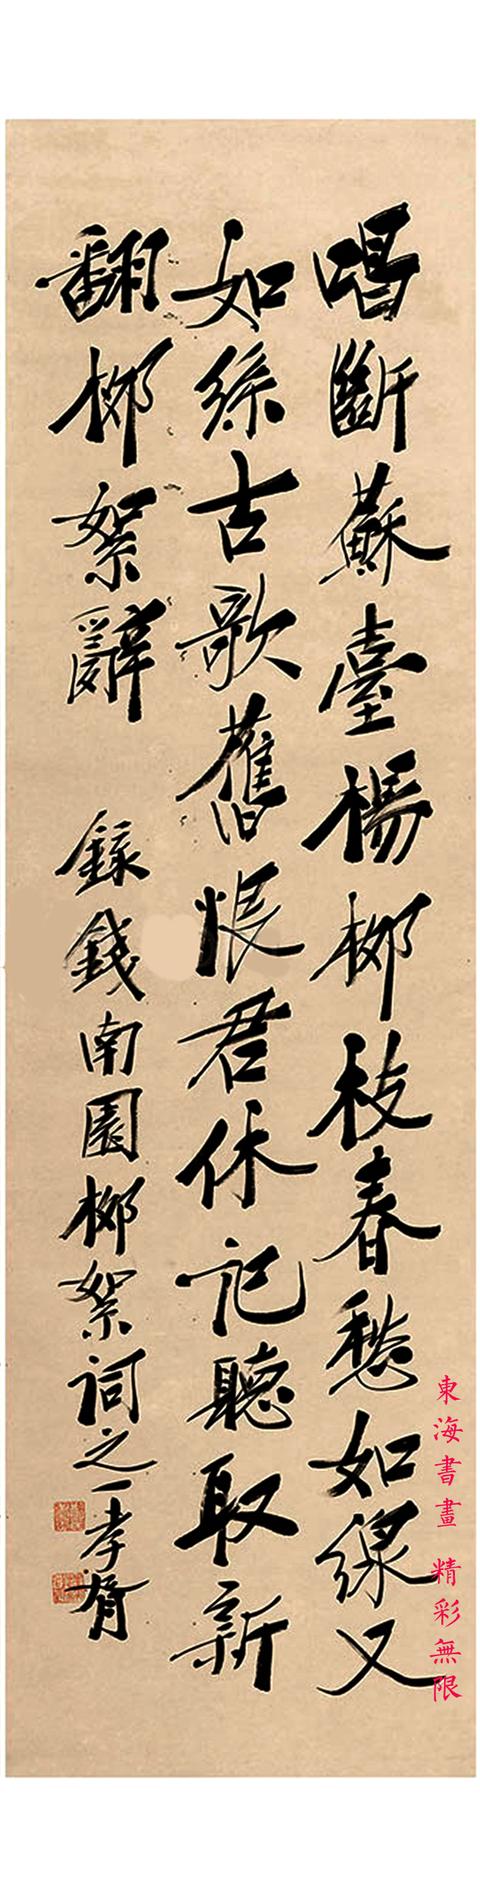 唱斷蘇臺楊柳枝春愁如線又
如絲古歌舊悵君休記聽取新
翻柳絮辭
錄錢南園柳絮詞之一孝胥
東海書畫 精彩無限